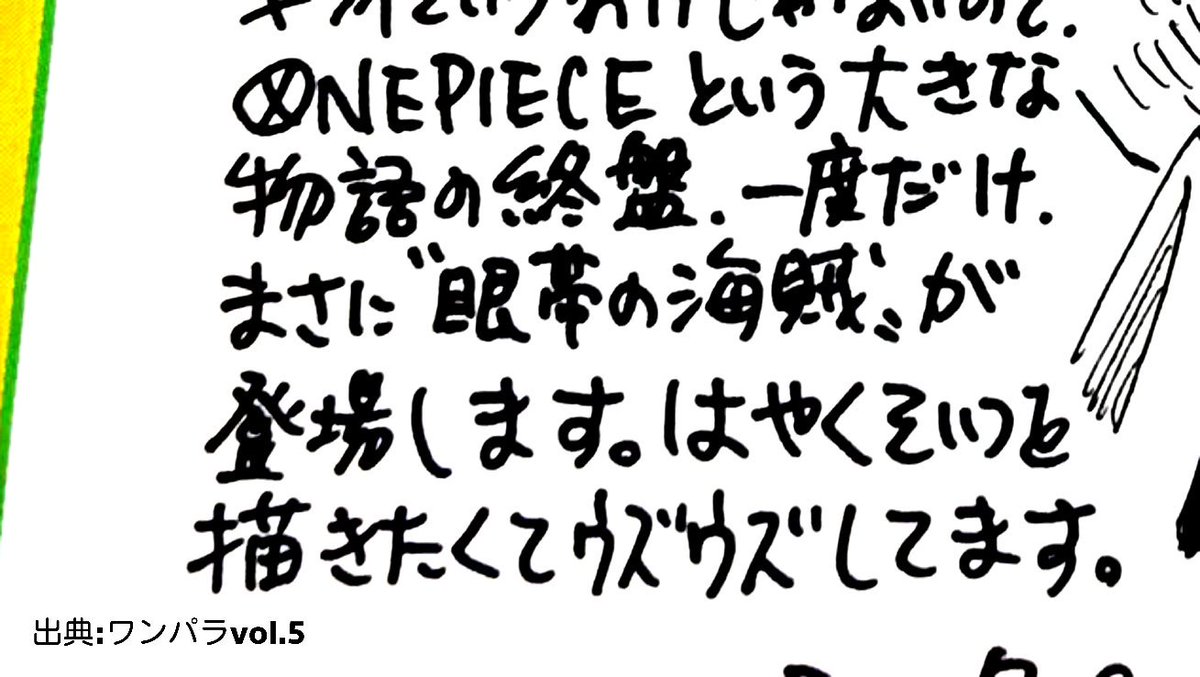 ONEPIECE という大きな
物語の終盤.一度だけ.
まさに〝眼帯の海賊〟が
登場します。はやくそいつを
描きたくてウズウズしてます。
出典:ワンパラvol.5